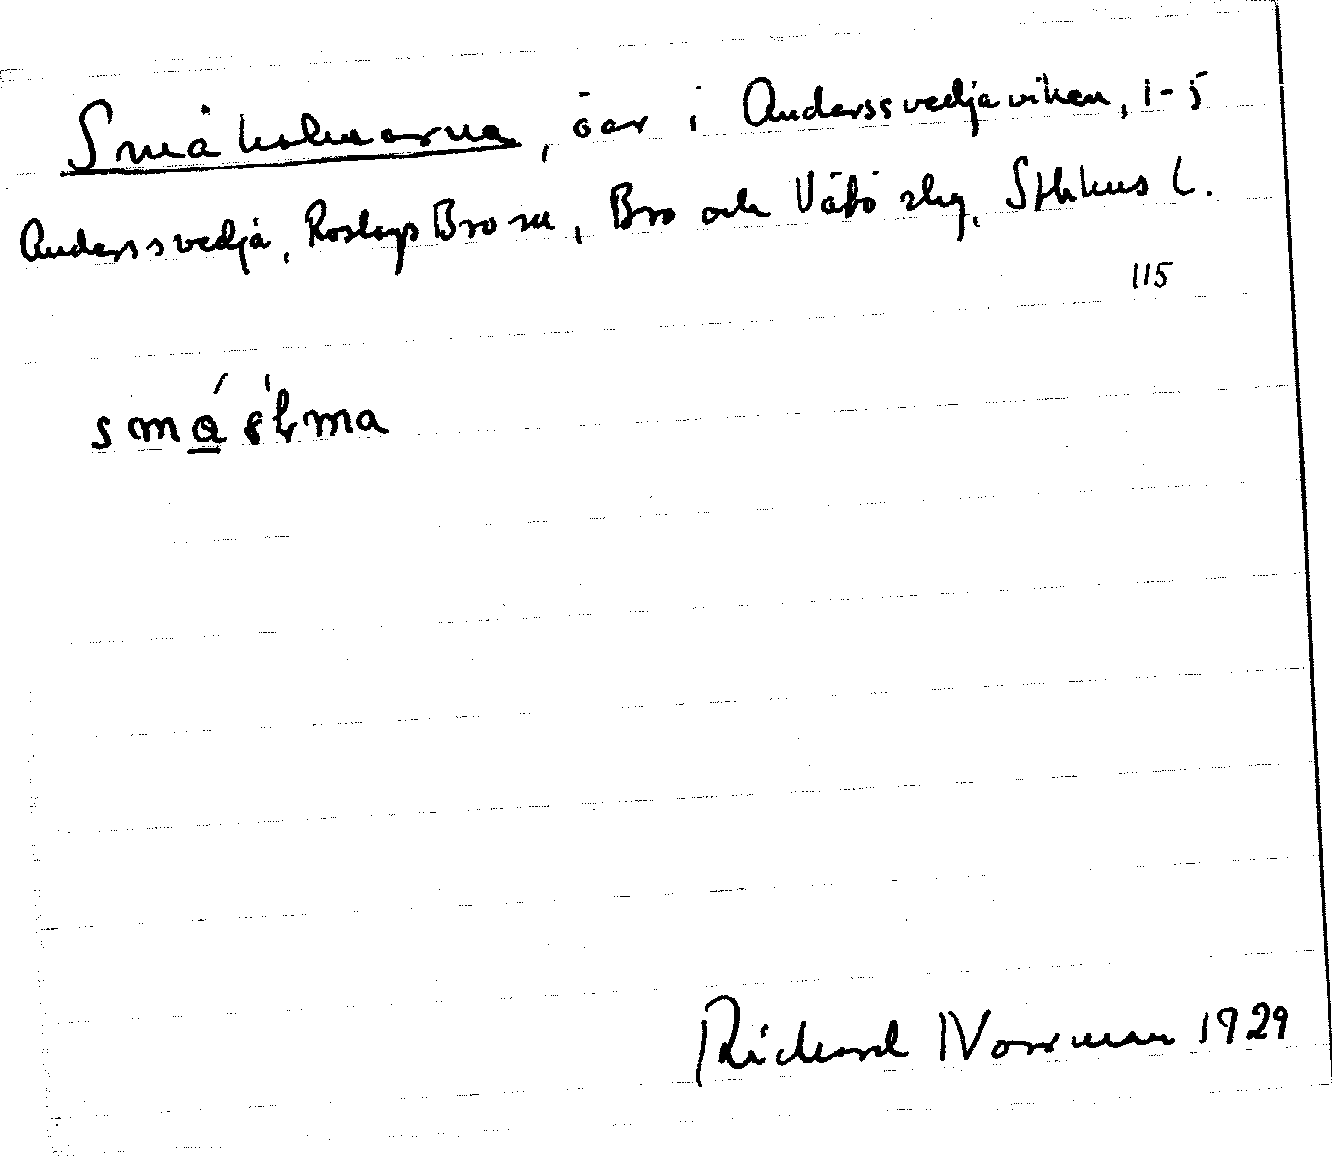 Småholmarna, öar i Anderssvedjaviken, 1-5
Anderssvedja, Roslags Bro sn, Bro och Vätö skg, Sthlms l.
115
Richard Norrman 1929